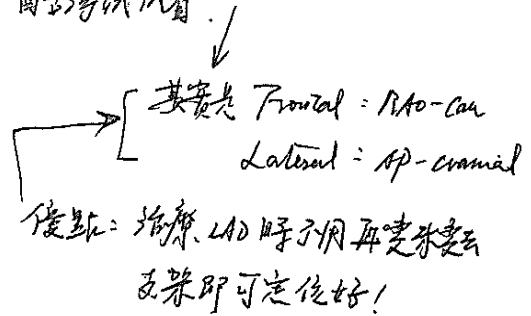 其實是 Frontal = RAO-Cau
Lateral = AP-cranial
優點: 治療 LAD 時不用再變來變去
支架即可定位好!